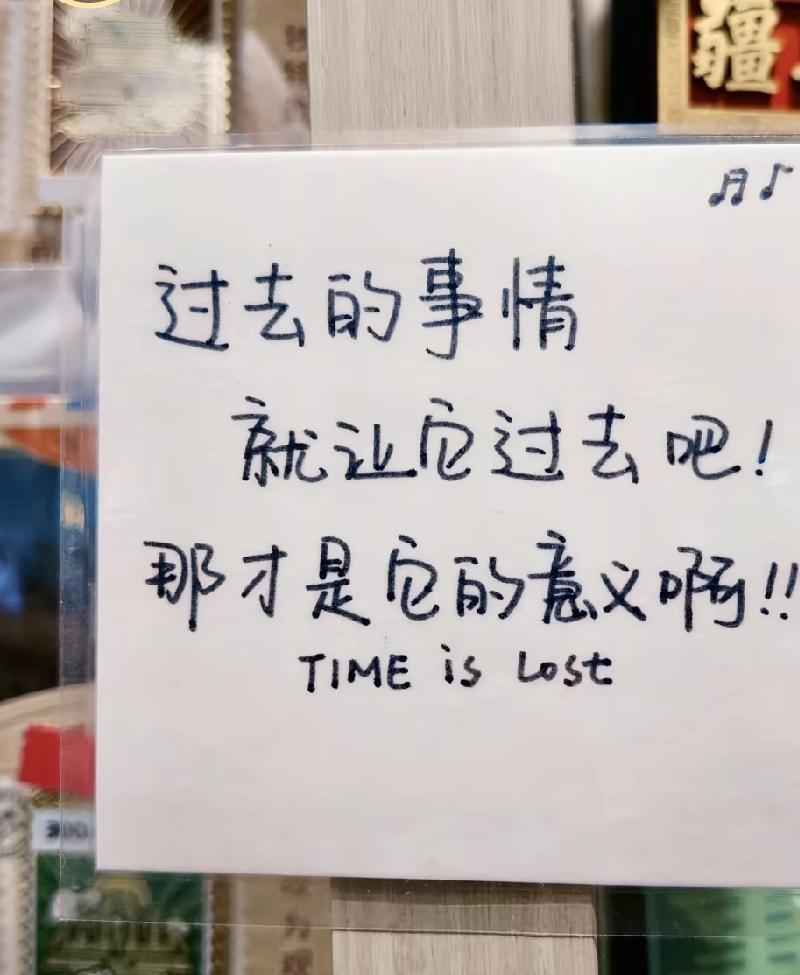 疆
过去的事情
就让它过去吧!
那才是它的意义啊!!
TIME is Lost